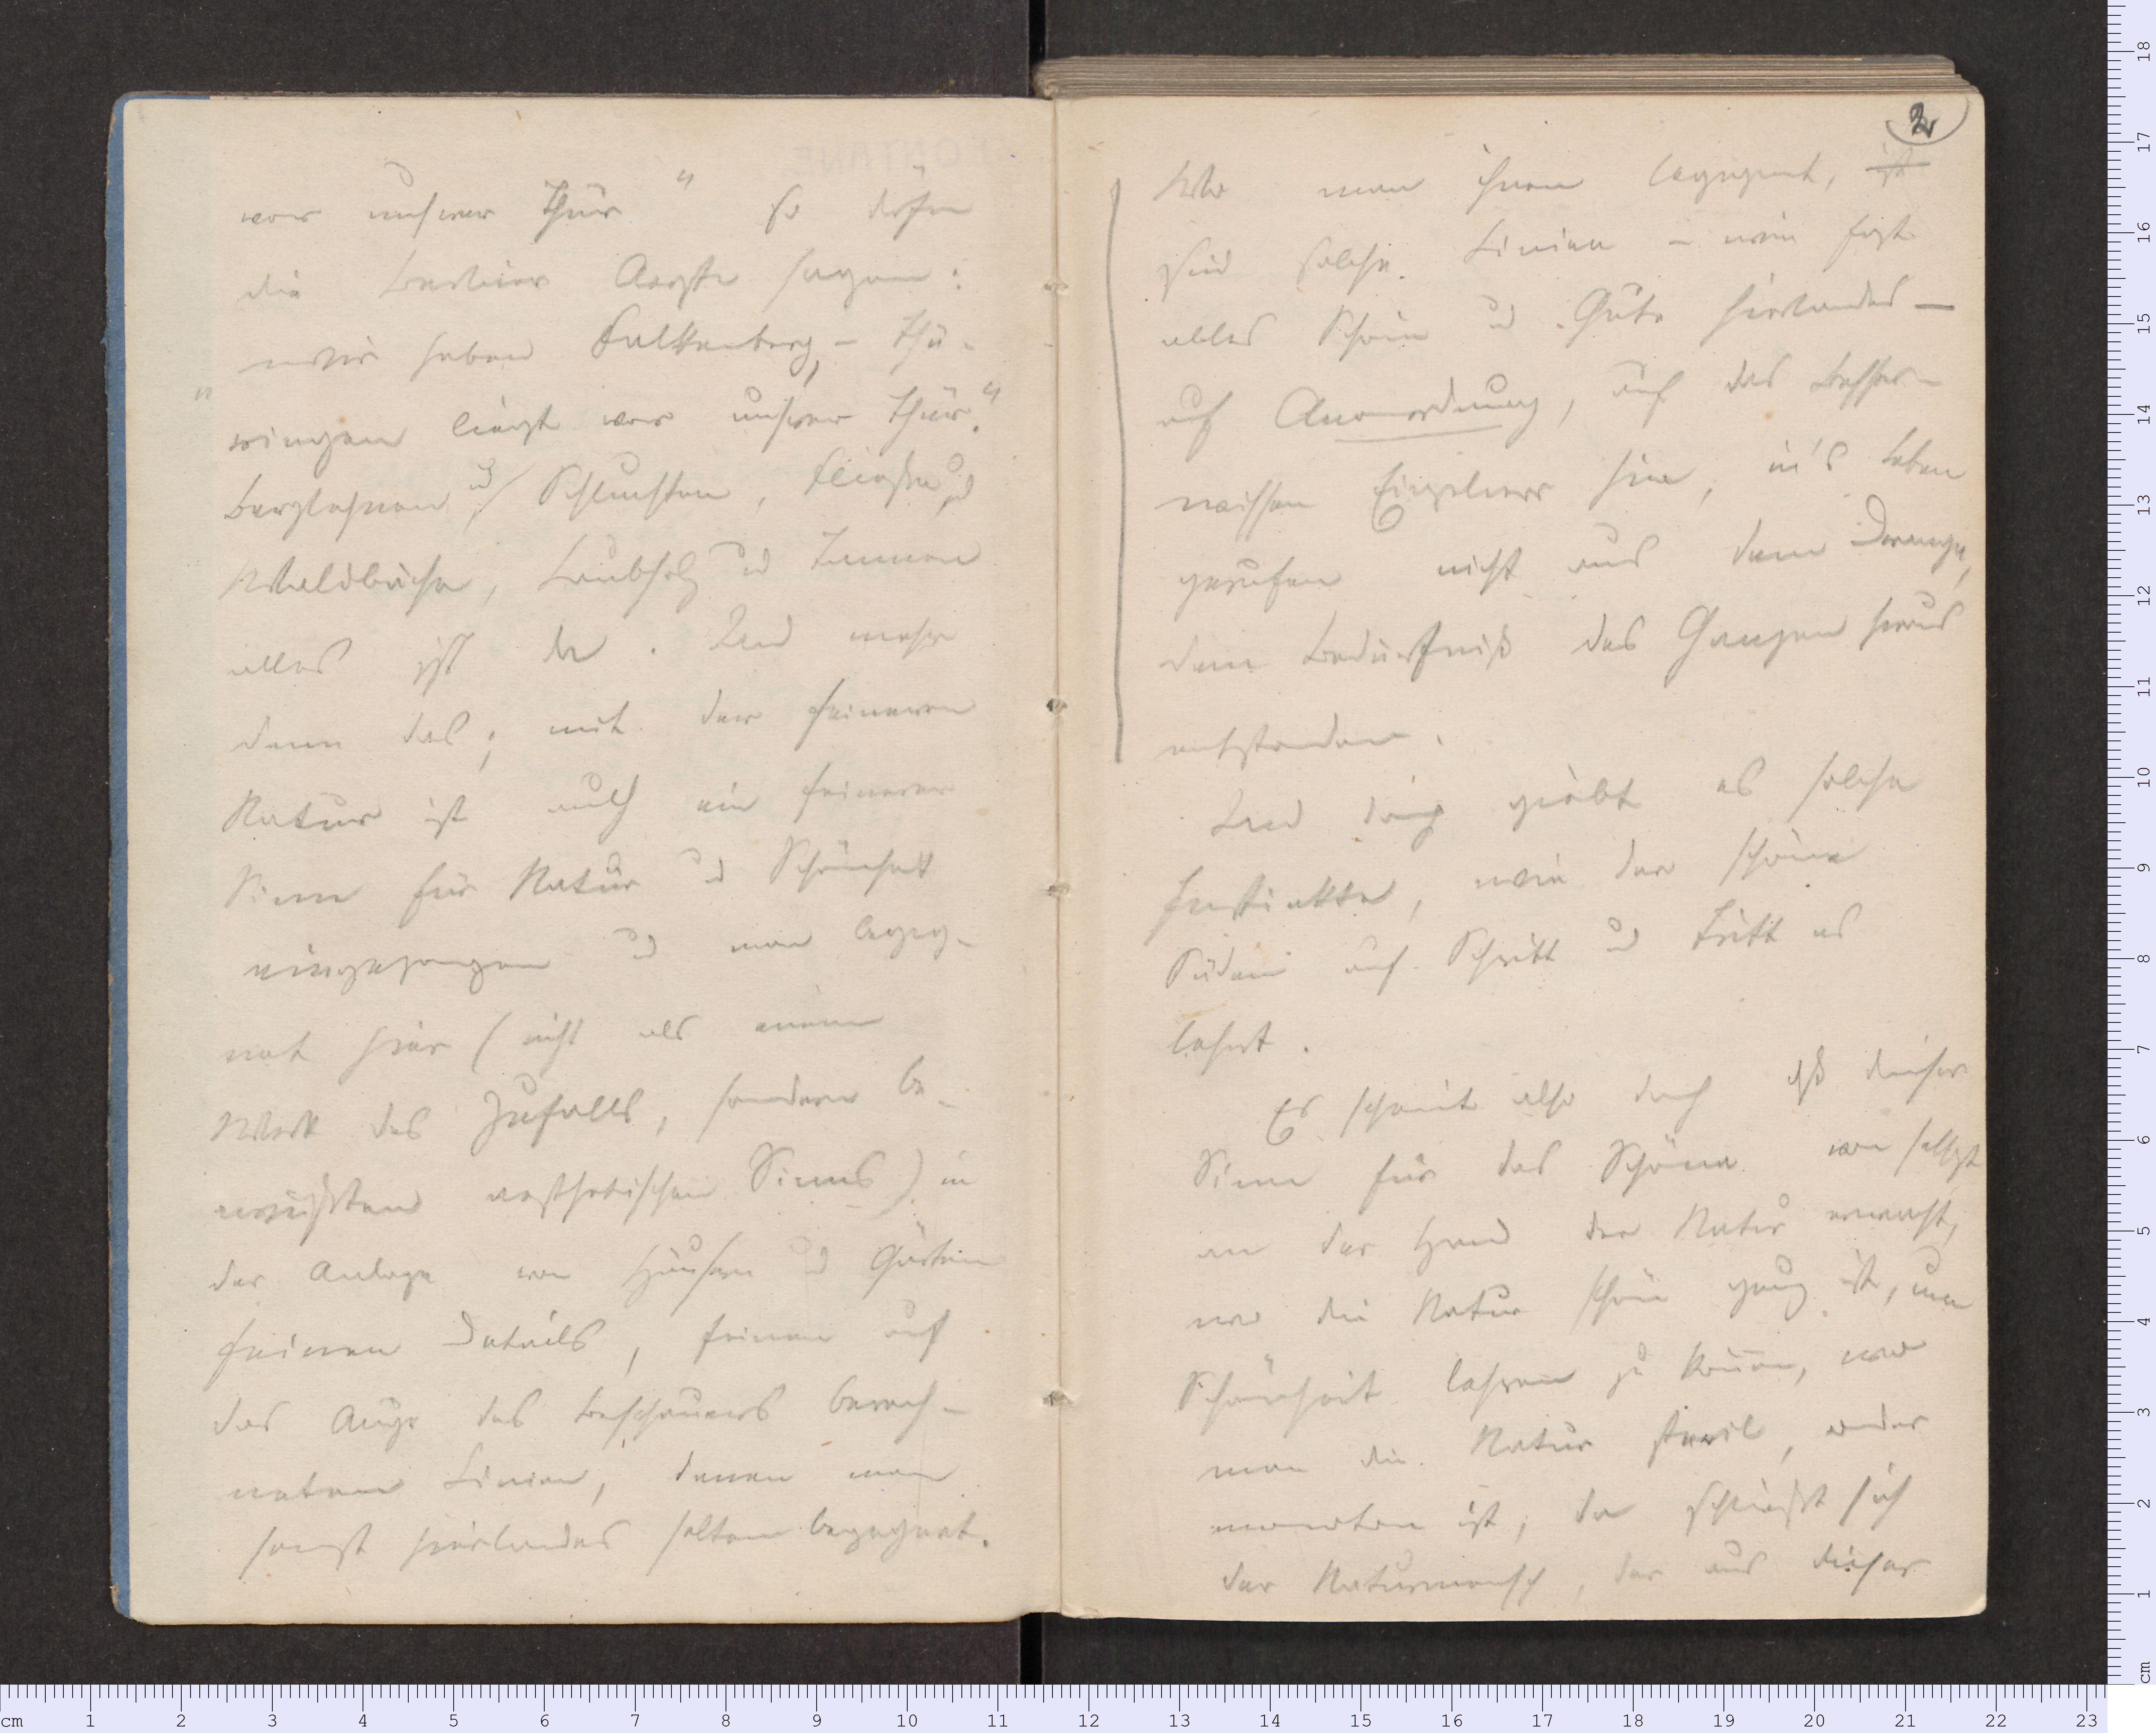 vor unsrer Thür" so dürfen
die Berliner Aerzte sagen:
wir haben Falkenberg, – Thü-
"ringen liegt vor unsrer Thür."
Berglehnen u Schluchten, Fließe u
Waldbäche, Laubholz u Tannen
alles ist da. Und mehr
denn das; mit der feineren
Natur ist auch ein feinerer
Sinn für Natur u Schönheit
eingezogen u man begeg-
net hier (nicht als einem
Werk des Zufalls, sondern be-
wußten aesthetischen Sinns) in
der Anlage von Häusern u Gärten
feinen Details, feinen auf
das Auge des Beschauers berech-
neten Linien, denen man
sonst hierlandes selten begegnet.
2
Wo man ihnen begegnet, ist
sind solche Linien – wie fast
alles Schöne u Gute hierlandes –
auf Anordnung, auf das Besser-
wissen Einzelner hin, in's Leben
gerufen nicht aus dem Drange,
dem Bedürfniß des Ganzen heraus
entstanden.
Und doch giebt es solche
Instinkte, wie der schöne
Süden auf Schritt u Tritt es
lehrt.
Es scheint also doch daß dieser
Sinn für das Schöne von selbst
an der Hand der Natur erwacht,
wo die Natur schön genug ist, um
Schönheit lehren zu können, wo
man die Natur steril, oder
ist, da schließt sich
der Naturmensch, der aus dieser